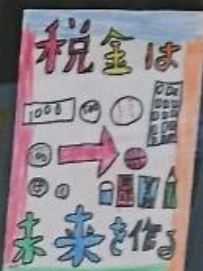 税金は
1000
未来を作る